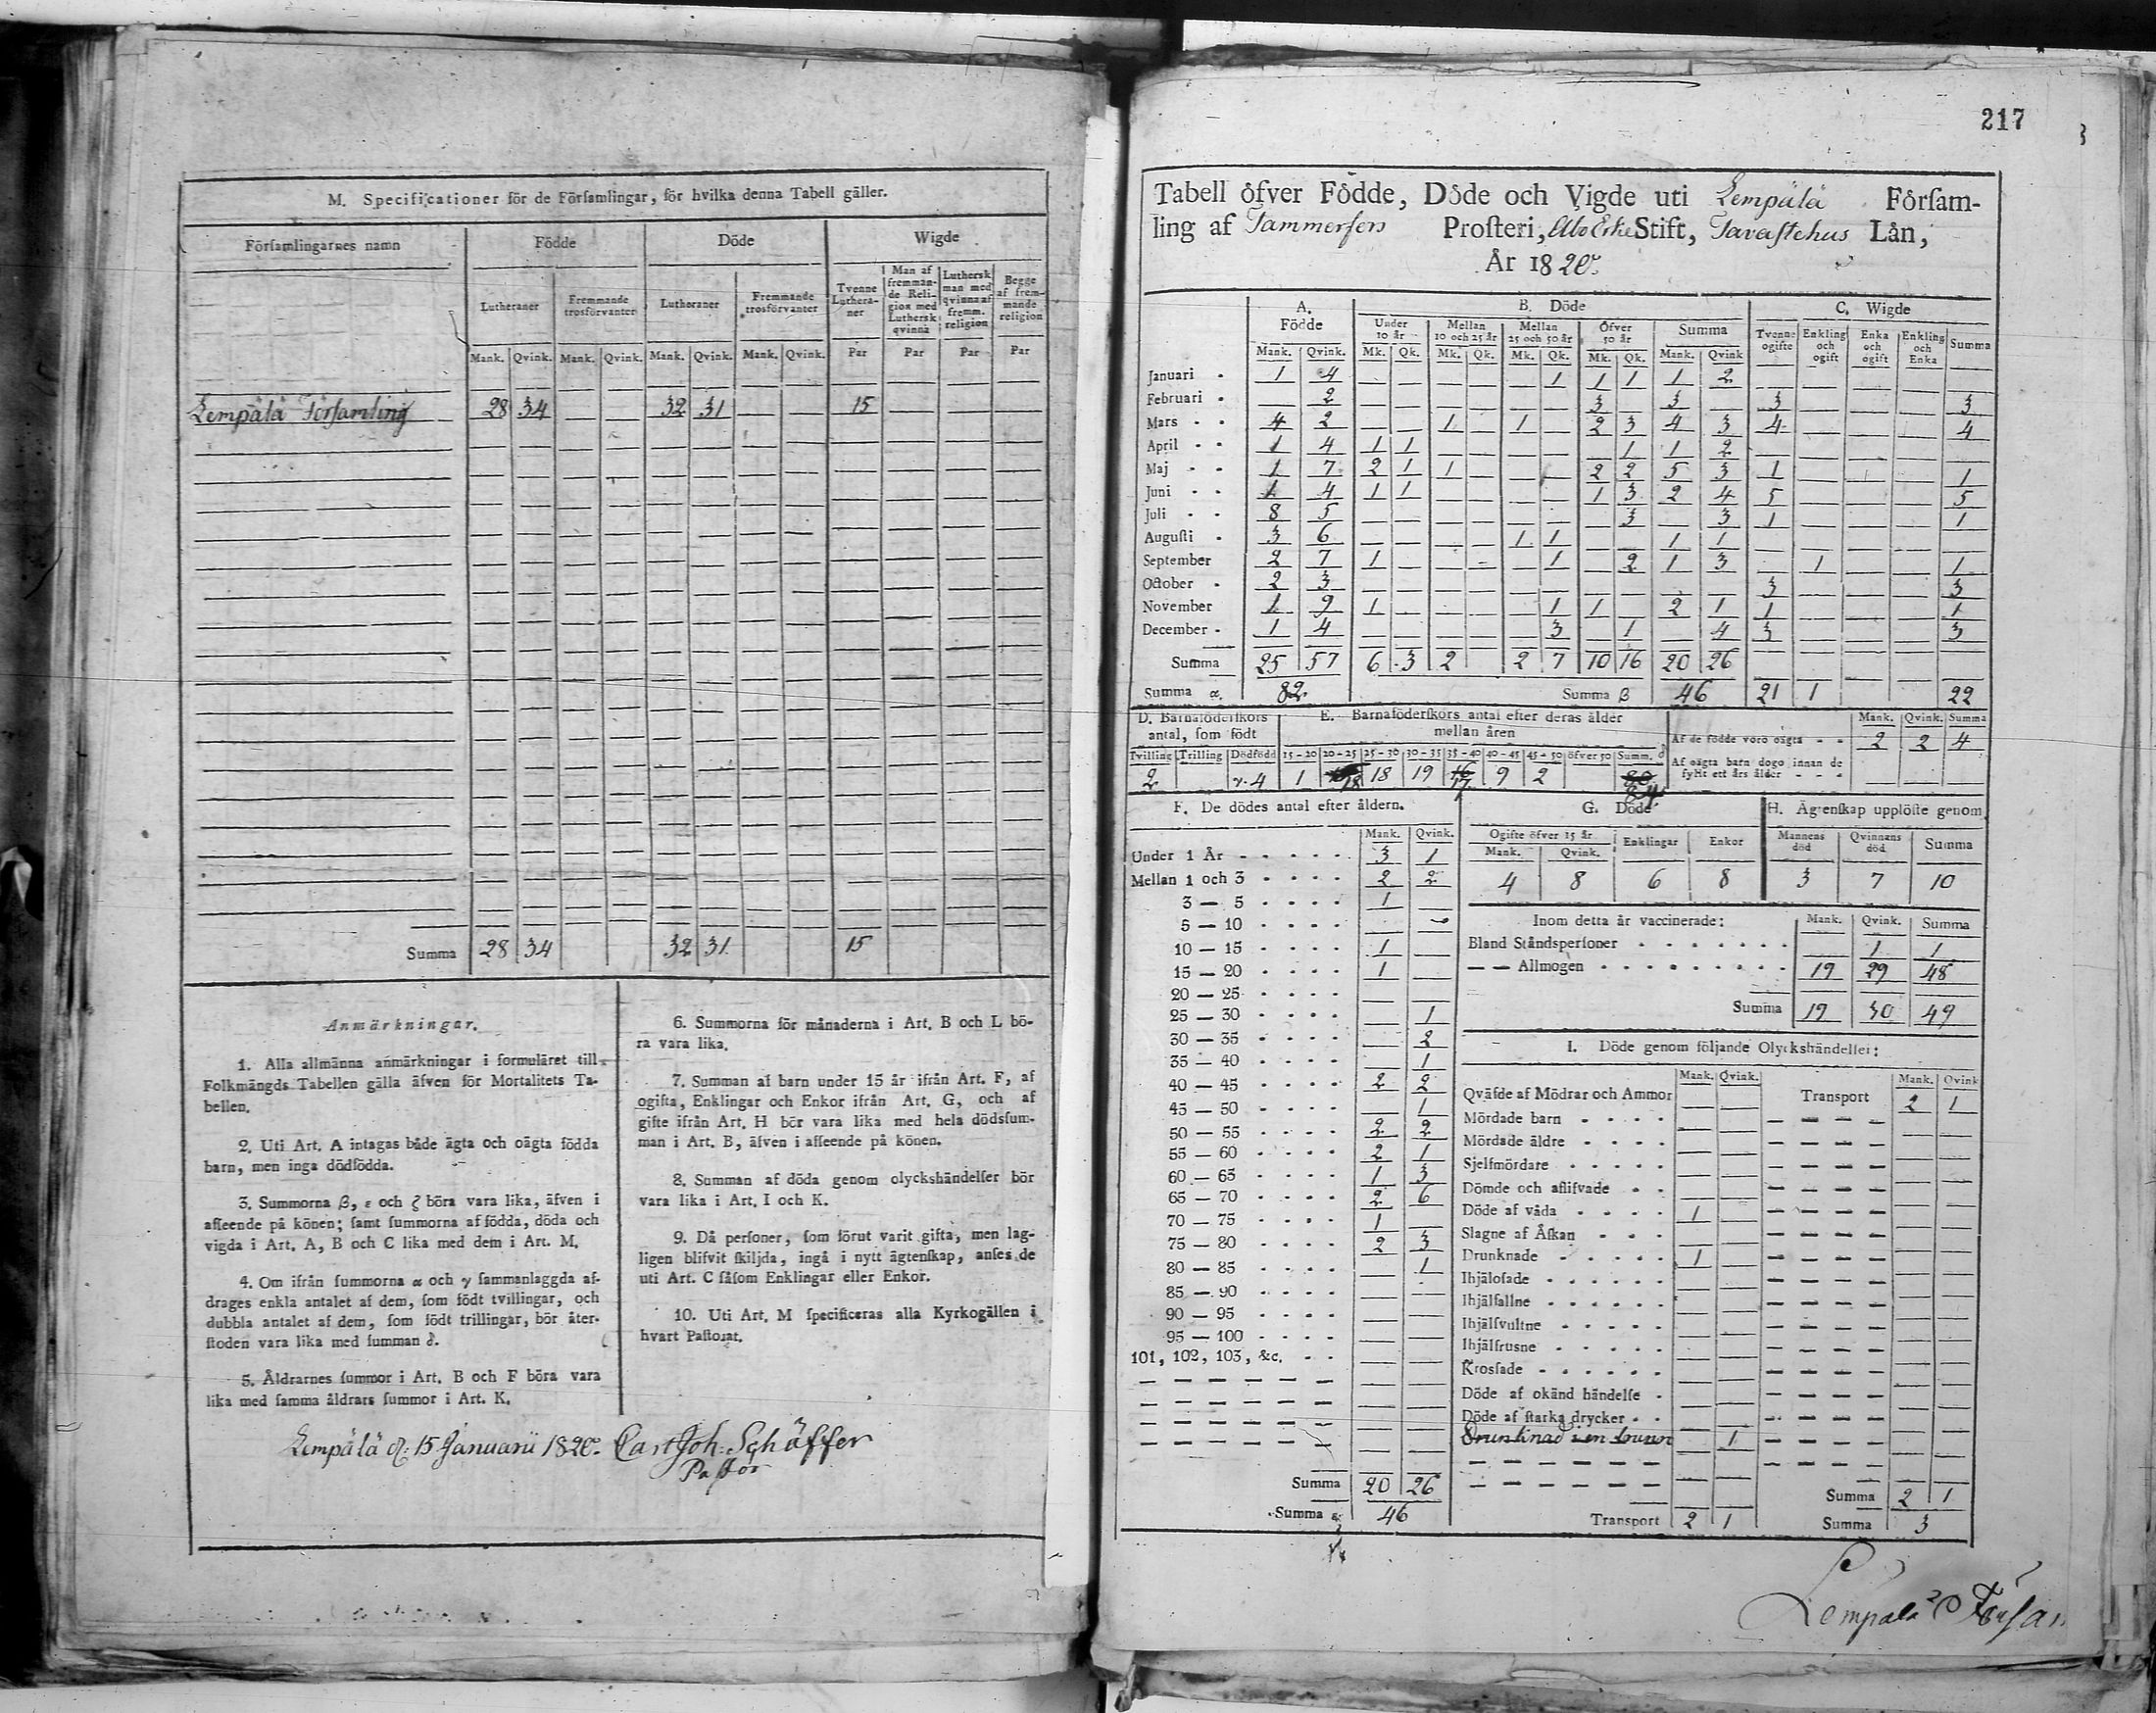 M. Specificationer för de Församlingar, för hvilka denna Tabell gäller.
Församlingarnes namn Födde Döde Wigde
Lutheraner Fremmande trosförvanter Lutheraner Fremmande trosförvanter Tvenne Lutheraner Man af fremmande Religion med Luthersk qvinna Luthersk man med qvinna af fremm. religion Begge af fremmande religion
Mank. Qvink. Mank. Qvink. Mank. Qvink. Mank. Qvink. Par Par Par Par
Lempälä Församling 28 34 32 31 15
Summa 28 34 32 31 15
Anmärkningar.
1. Alla allmänna anmärkningar i formuläret till
Folkmängds Tabellen gälla äfven för Mortalitets Ta-
bellen.
2. Uti Art. A intagas både ägta och oägta födda
barn, men inga dödfödda.
3. Summorna β, ε och ζ böra vara lika, äfven i
afseende på könen; samt summorna af födda, döda och
vigda i Art. A, B och C lika med dem i Art. M.
4. Om ifrån summorna α och γ sammanlaggda af-
drages enkla antalet af dem, som födt tvillingar, och
dubbla antalet af dem, som födt trillingar, bör åter-
stoden vara lika med summan δ.
5. Åldrarnes summor i Art. B och F böra vara
lika med samma åldrars summor i Art. K.
6. Summorna för månaderna i Art. B och L bö-
ra vara lika.
7. Summan af barn under 15 år ifrån Art. F, af
ogifta, Enklingar och Enkor ifrån Art. G, och af
gifte ifrån Art. H bör vara lika med hela dödssum-
man i Art. B, äfven i afseende på könen.
8. Summan af döda genom olyckshändelser bör
vara lika i Art. I och K.
9. Då personer, som förut varit gifta, men lag-
ligen blifvit skiljda, ingå i nytt ägtenskap, anses de
uti Art. C såsom Enklingar eller Enkor.
10. Uti Art. M specificeras alla Kyrkogällen i
hvart Pastorat.
Lempälä d: 15 Januarii 1820. Carl Joh: Schäffer
Pastor
217
Tabell öfver Födde, Döde och Vigde uti Lempälä Församling af Tammerfors Prosteri, Åbo Erke Stift, Tavastehus Län,
År 1820.
A. Födde B. Döde C. Wigde
Under 10 år Mellan 10 och 25 år Mellan 25 och 50 år Öfver 50 år Summa Tvenne ogifte Enkling och ogift Enka och ogift Enkling och Enka Summa
Mank. Qvink. Mk. Qk. Mk. Qk. Mk. Qk. Mk. Qk. Mank. Qvink
Januari 1 4 1 1 1 1 2
Februari 2 3 3 3 3
Mars 4 2 1 1 2 3 4 3 4 4
April 1 4 1 1 1 1 2
Maj 1 7 2 1 1 2 2 5 3 1 1
Juni 1 4 1 1 1 3 2 4 5 5
Juli 8 5 3 3 1 1
Augusti 3 6 1 1 1 1
September 2 7 1 1 2 1 3 1 1
October 2 3 3 3
November 1 9 1 1 1 2 1 1 1
December 1 4 3 1 4 3 3
Summa 25 57 6 3 2 2 7 10 16 20 26
Summa α. 82 Summa β 46 21 1 22
D. Barnaföderskors antal, som födt
Tvilling Trilling Dödfödd
2 γ. 4
E. Barnaföderskors antal efter deras ålder mellan åren
15 - 20 20 - 25 25 - 30 30 - 35 35 - 40 40 - 45 45 - 50 öfver 50 Summ. δ
1 18 18 19 17 9 2 84
Mank. Qvink. Summa
Af de födde voro oägta 2 2 4
Af oägta barn dogo innan de fyllt ett års ålder
F. De dödes antal efter åldern.
Mank. Qvink.
Under 1 År 3 1
Mellan 1 och 3 2 2
3 — 5 1
5 — 10
10 — 15 1
15 — 20 1
20 — 25
25 — 30 1
30 — 35 2
35 — 40 1
40 — 45 2 2
45 — 50 1
50 — 55 2 2
55 — 60 2 1
60 — 65 1 3
65 — 70 2 6
70 — 75 1
75 — 80 2 3
80 — 85 1
85 — 90
90 — 95
95 — 100
101, 102, 103, &c.
Summa 20 26
Summa ε 46
G. Döde
Ogifte öfver 15 år Enklingar Enkor
Mank. Qvink.
4 8 6 8
H. Ägtenskap upplöste genom
Mannens död Qvinnans död Summa
3 7 10
Inom detta år vaccinerade: Mank. Qvink. Summa
Bland Ståndspersoner 1 1
— — Allmogen 19 29 48
Summa 19 30 49
I. Döde genom följande Olyckshändelser:
Mank. Qvink. Mank. Qvink
Qväfde af Mödrar och Ammor Transport 2 1
Mördade barn
Mördade äldre
Sjelfmördare
Dömde och aflifvade
Döde af våda 1
Slagne af Åskan
Drunknade 1
Ihjälosade
Ihjälfallne
Ihjälsvultne
Ihjälfrusne
Krossade
Döde af okänd händelse
Döde af starka drycker
Drunknad i en brunn 1
Summa 2 1
Transport 2 1 Summa 3
Lempälä